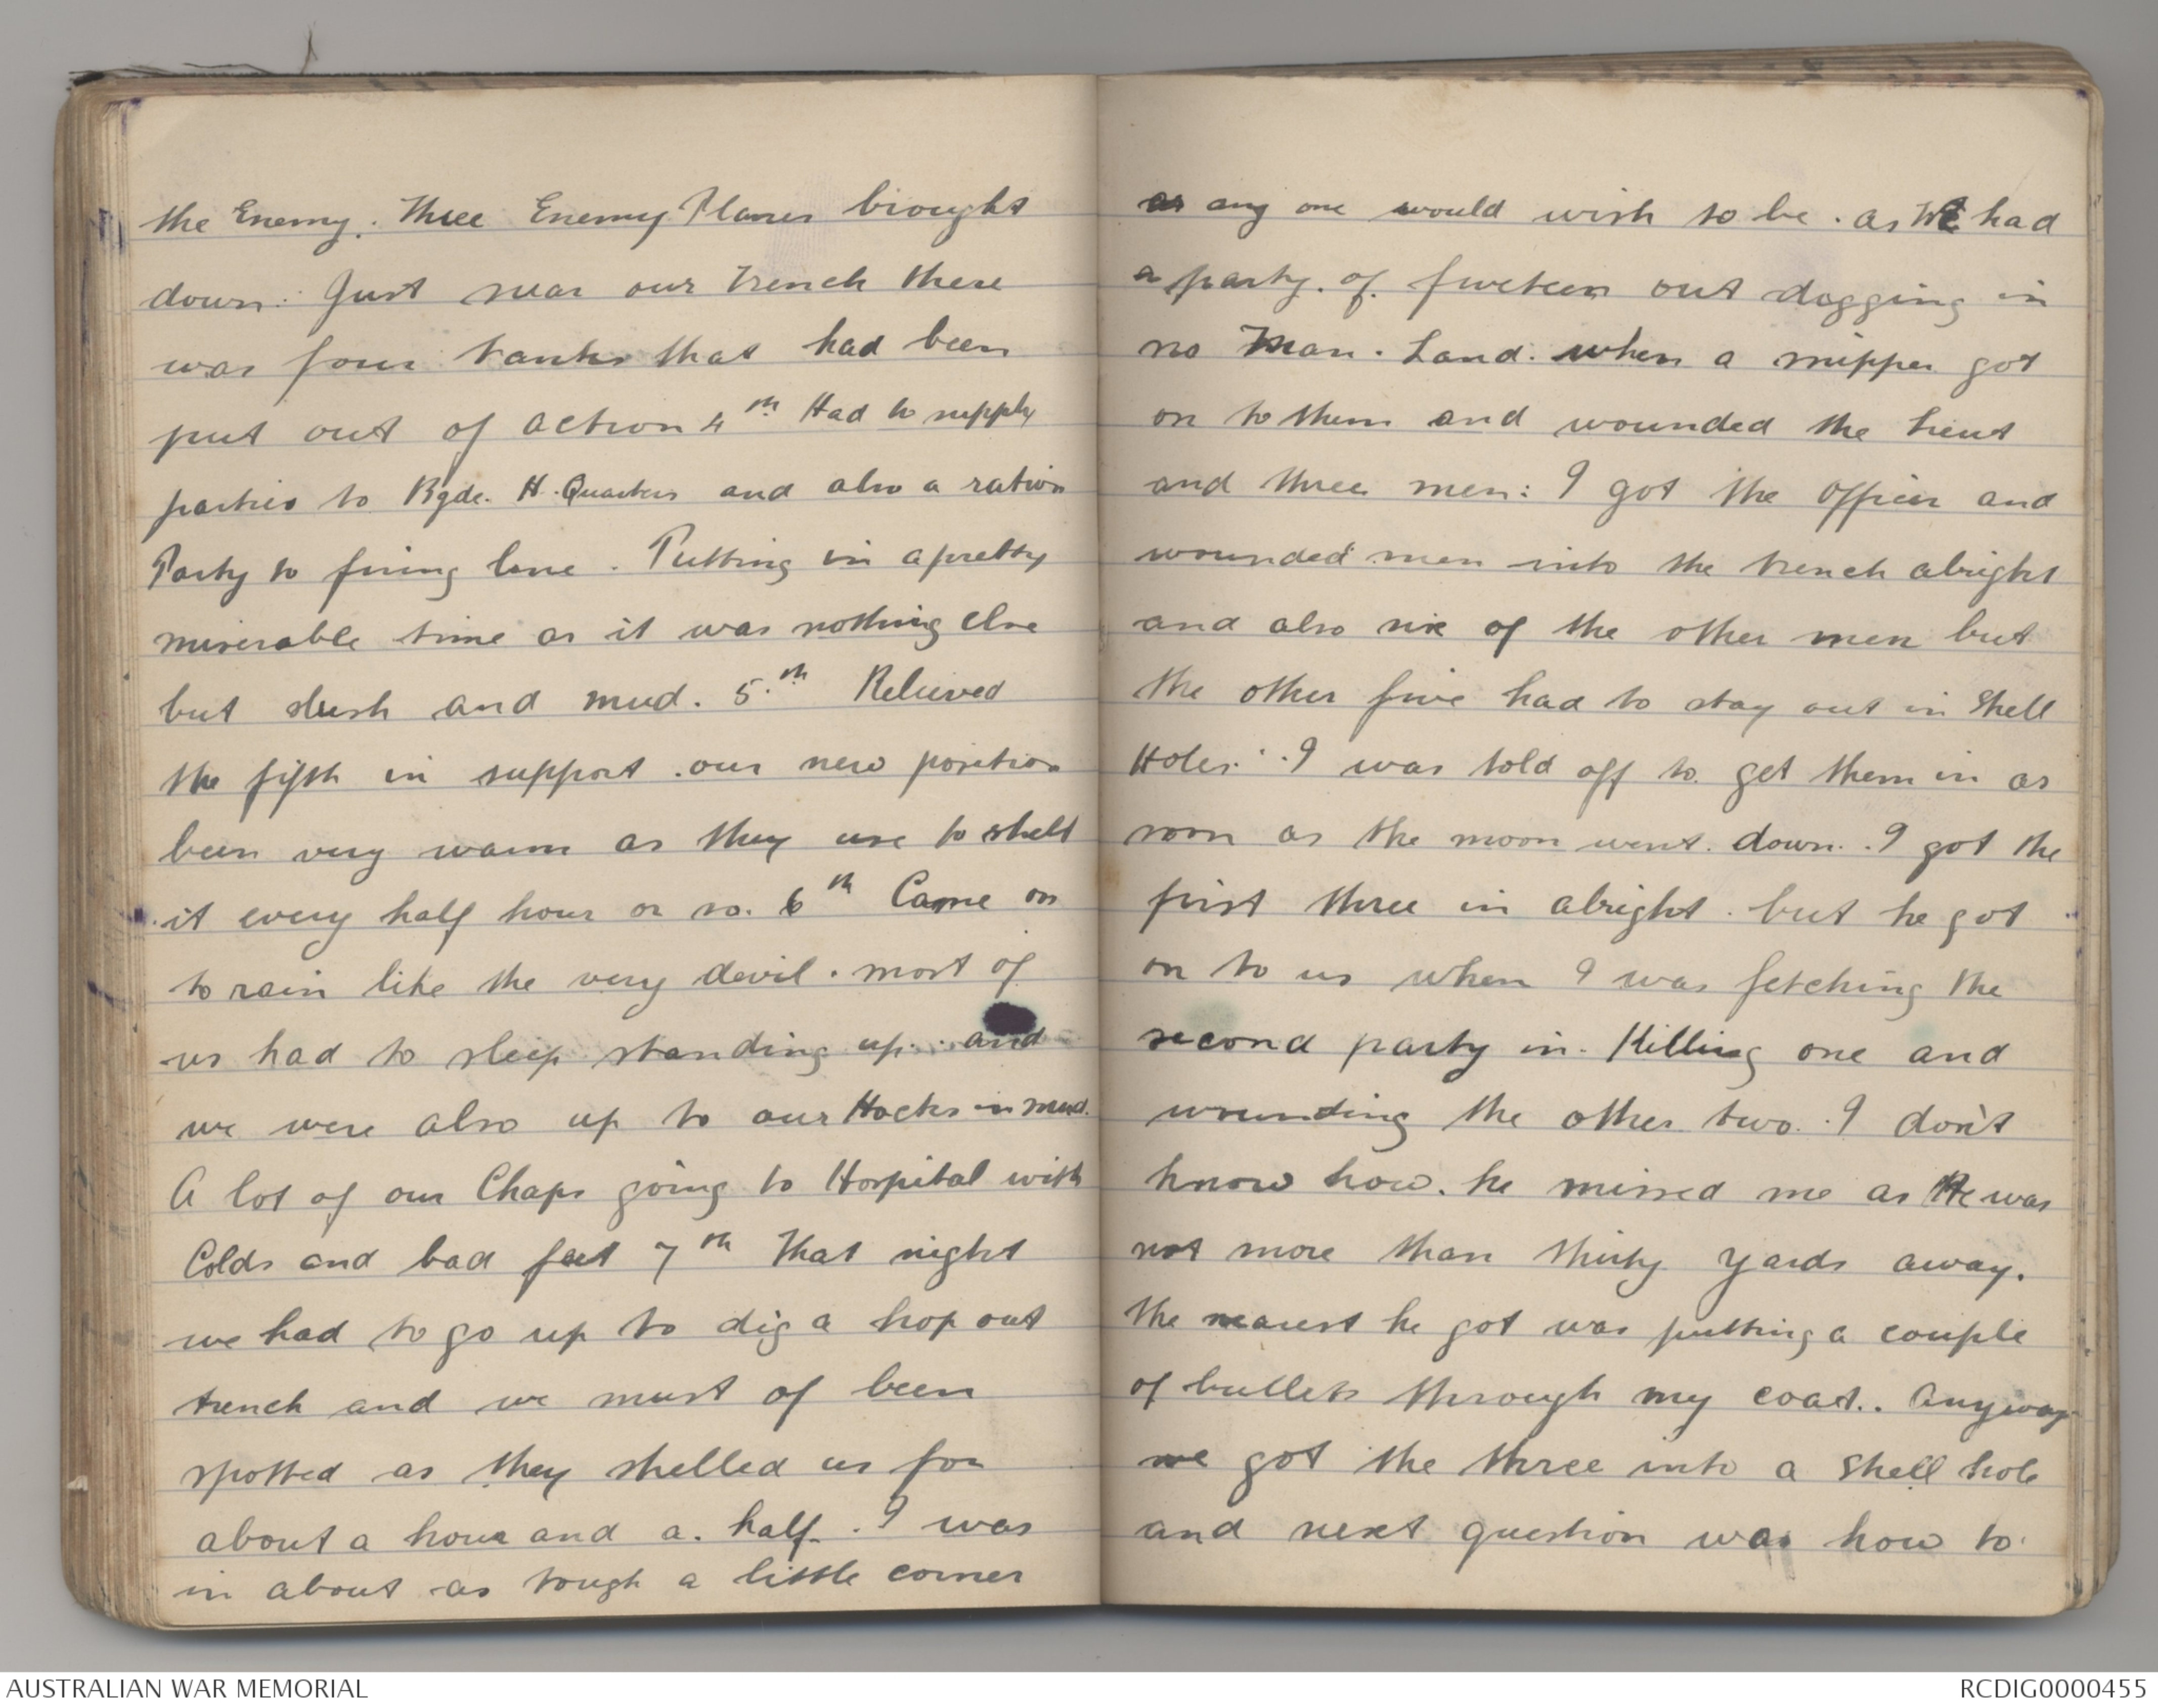 the Enemy. Three Enemy Planes brought
down. Just near our trench there
was four tanks that had been
put out of action 4th Had to supply
parties to Bgde. H. Quarters and also a ration
Party to firing line. Putting in a pretty
miserable time as it was nothing else
but slush and mud. 5th Relieved
the fifth in support. our new position
been very warm as they use to shell
it every half hour or so. 6th Came on
to rain like the very devil. most of
us had to sleep standing up. and
we were also up to our Hocks in mud.
A lot of our Chaps going to Hospital with
Colds and bad feet 7th That night
we had to go up to dig a hop out
trench and we must of been
spotted as they shelled us for
about a hour and a. half. I was
in about as tough a little corner
as any one would wish to be. as We had
a party. of. out digging in
no Man. Land. when a snipper got
on to them and wounded the Lieut
and three men: I got the Officer and
wounded men into the trench alright
and also six of the other men but
the other five had to stay out in Shell
Holes. I was told off to get them in as
soon as the moon went. down. I got the
first three in alright. but he got
on to us when I was fetching the
second party in. Killing one and
wounding the other two. I don't
know how. he missed me as He was
not more than thirty yards away.
The nearest he got was putting a couple
of bullets through my coat.. Anyway
we got the three into a Shell hole
and next question was how to
AUSTRALIAN WAR MEMORIAL
RCDIG0000455